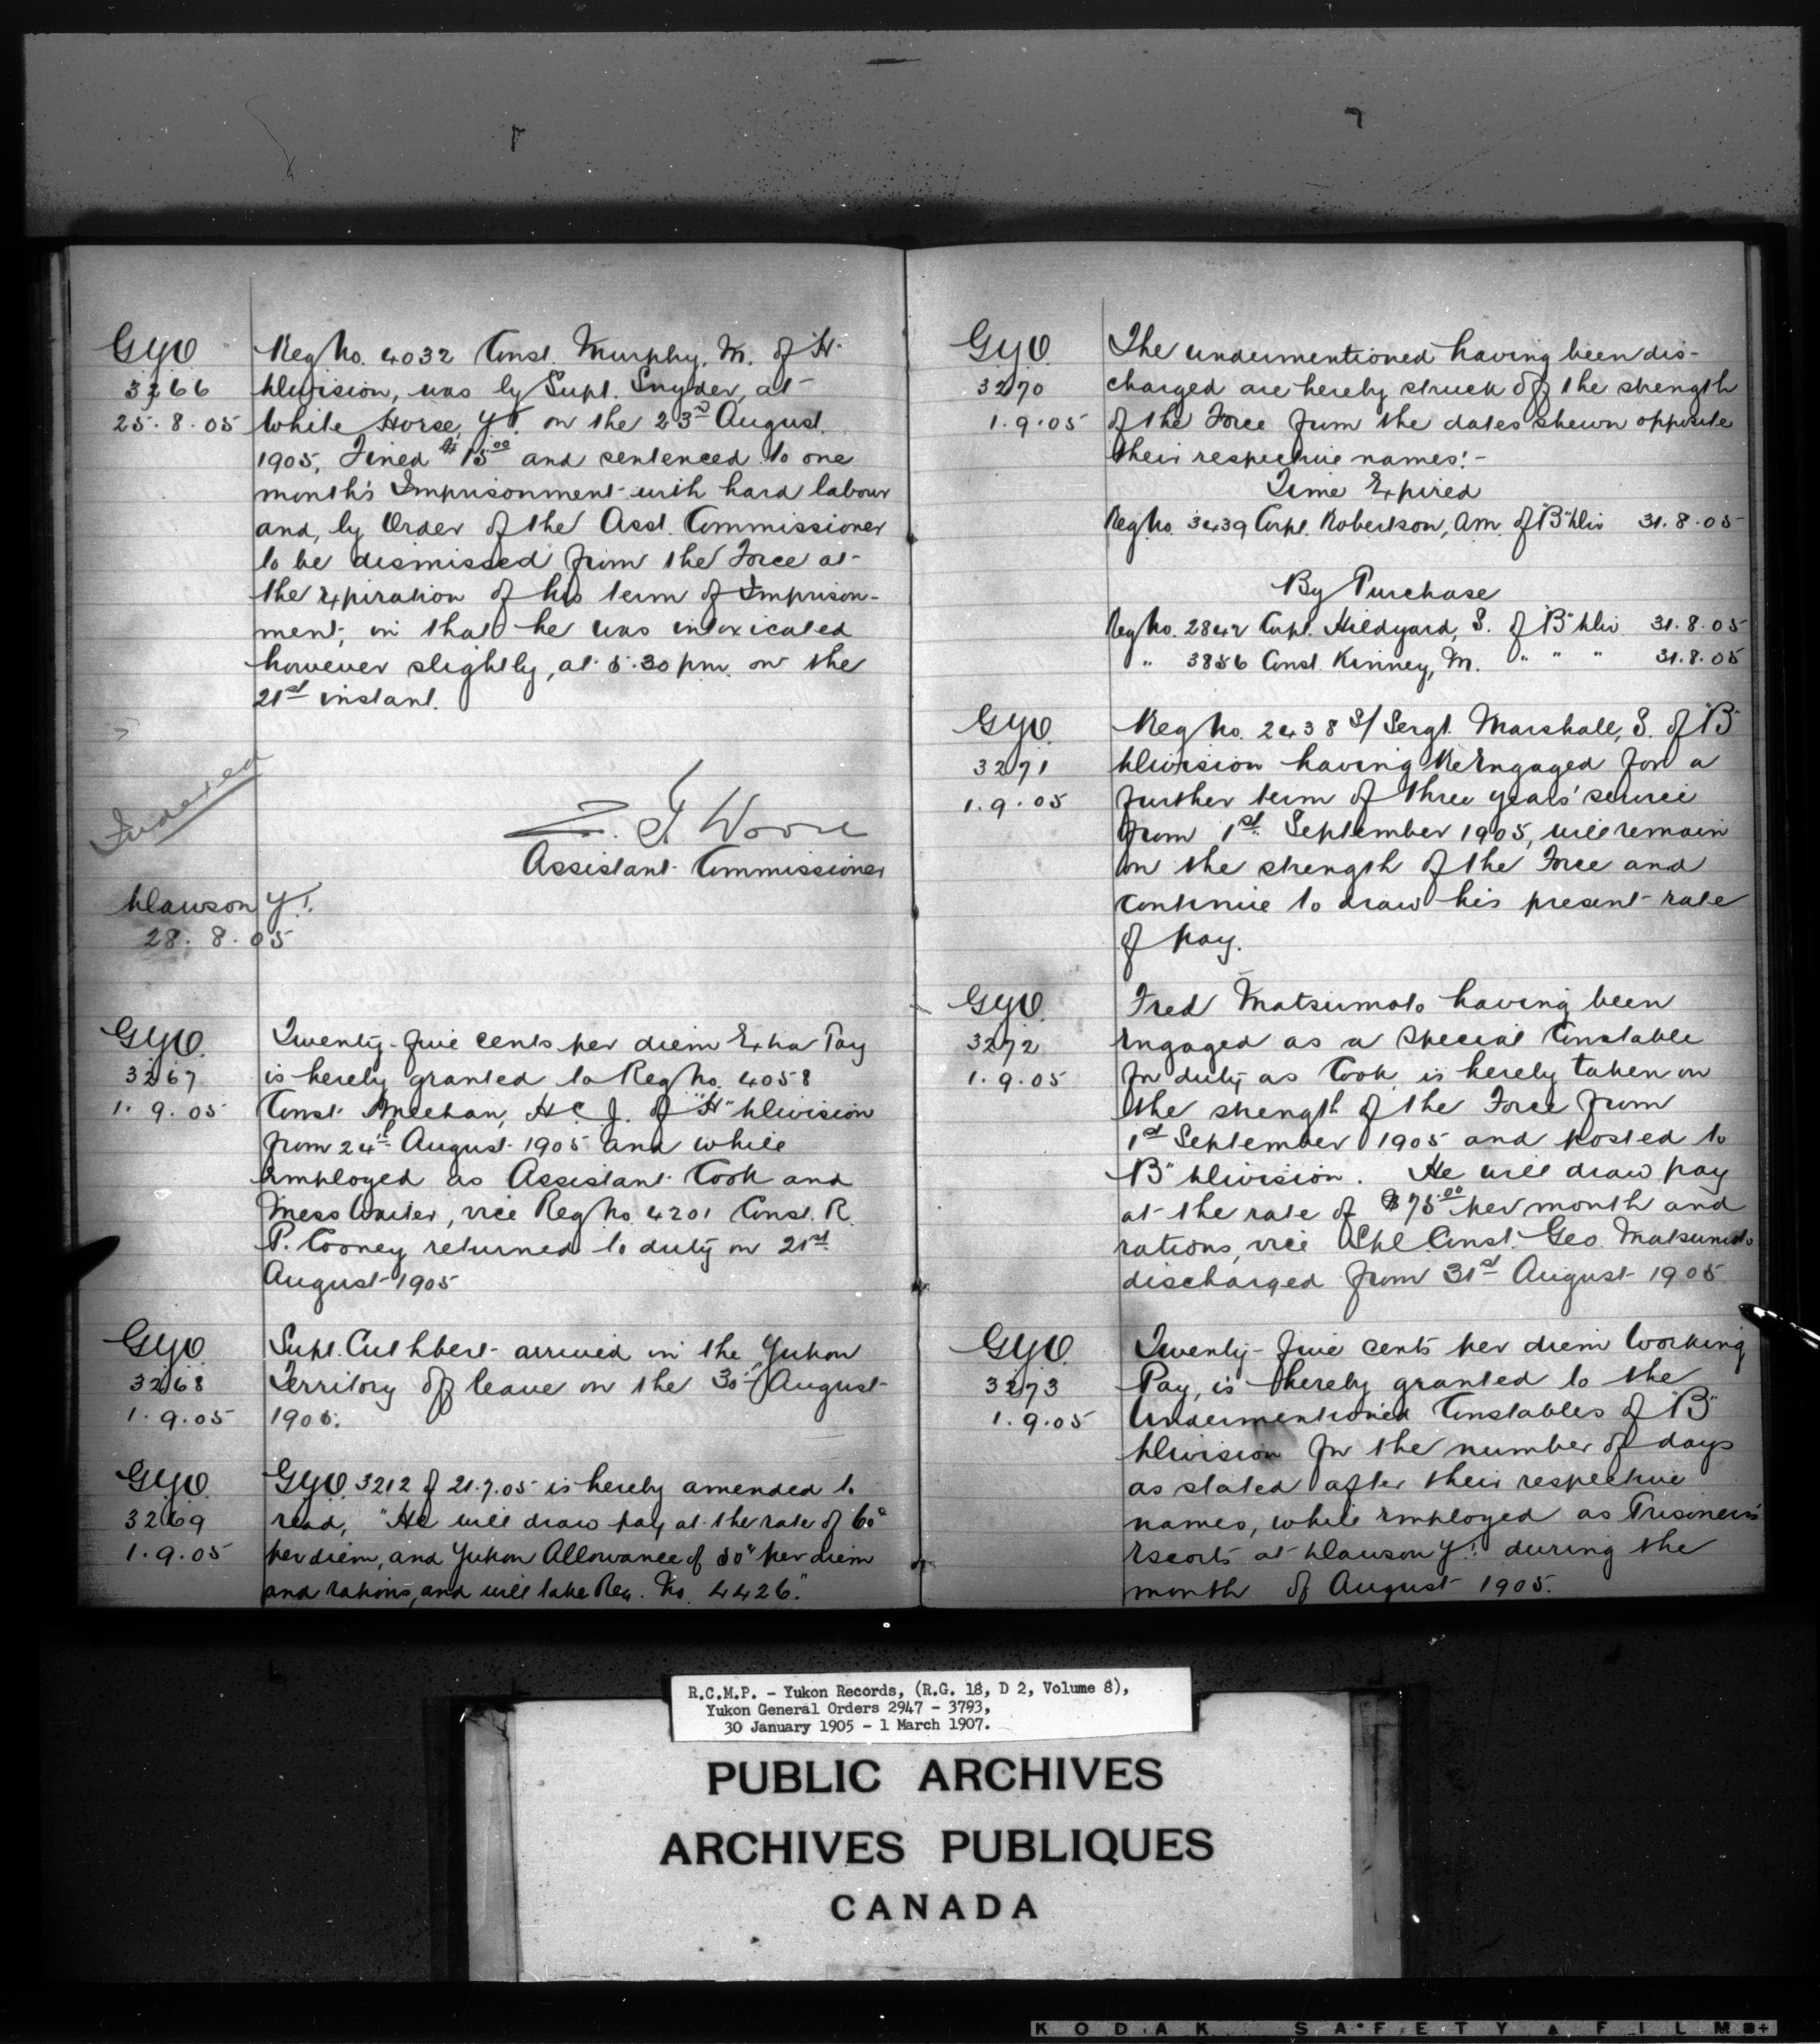 GYO
3266
25.8.05
Reg No. 4032 Const. Murphy, M. of "H"
Division, was by Supt. Snyder, at
White Horse, Y.T. on the 23rd August
1905, Fined $15.00 and sentenced to one
month's Imprisonment with hard labour
and, by Order of the Asst. Commissioner
to be dismissed from the Force at
the expiration of his term of Imprison-
ment, in that he was intoxicated
however slightly, at 5.30 pm. on the
21st instant.
Indexed
Z. T. Wood
Assistant Commissioner
Dawson Y.T.
28.8.05
GYO.
3267
1.9.05
Twenty-five cents per diem Extra Pay
is hereby granted to Reg No. 4058
Const. Meehan, H C J. of "H" Division
from 24th August 1905 and while
employed as Assistant Cook and
Mess Waiter, vice Reg No 4201 Const. R.
P. Cooney returned to duty on 21st
August 1905
GYO.
3268
1.9.05
Supt. Cuthbert arrived in the Yukon
Territory off leave on the 30th August
1905.
GYO.
3269
1.9.05
GYO. 3212 of 21.7.05 is hereby amended to
read, "He will draw pay at the rate of 60c
per diem, and Yukon Allowance of 50c per diem
and rations, and will take Reg. No. 4426."
GYO.
3270
1.9.05
The undermentioned having been dis-
charged are hereby struck off the strength
of the Force from the dates shewn opposite
their respective names:-
Time Expired
Reg No. 3439 Corpl. Robertson, A.M. of "B" Div 31.8.05
By Purchase
Reg No. 2842 Corpl. Hildyard, S. of "B" Div 31.8.05
" 3856 Const. Kinney, M. " " " 31.8.05
GYO.
3271
1.9.05
Reg No. 2438 S/Sergt. Marshall, S. of "B"
Division having Re Engaged for a
further term of three years' service
from 1st September 1905, will remain
on the strength of the Force and
continue to draw his present rate
of pay.
GYO.
3272
1.9.05
Fred Matsumoto having been
engaged as a Special Constable
for duty as Cook, is hereby taken on
the strength of the Force from
1st September 1905 and posted to
"B" Division. He will draw pay
at the rate of $75.00 per month and
rations, vice Spl Const. Geo. Matsumoto
discharged from 31st August 1905
GYO.
3273
1.9.05
Twenty-five cents per diem Working
Pay, is hereby granted to the
Undermentioned Constables of "B"
Division for the number of days
as stated after their respective
names, while employed as Prisoners
Escorts at Dawson Y.T. during the
month of August 1905.
R.C.M.P. - Yukon Records, (R.G. 18, D 2, Volume 8),
Yukon General Orders 2947 - 3793,
30 January 1905 - 1 March 1907.
PUBLIC ARCHIVES
ARCHIVES PUBLIQUES
CANADA
KODAK SAFETY FILM